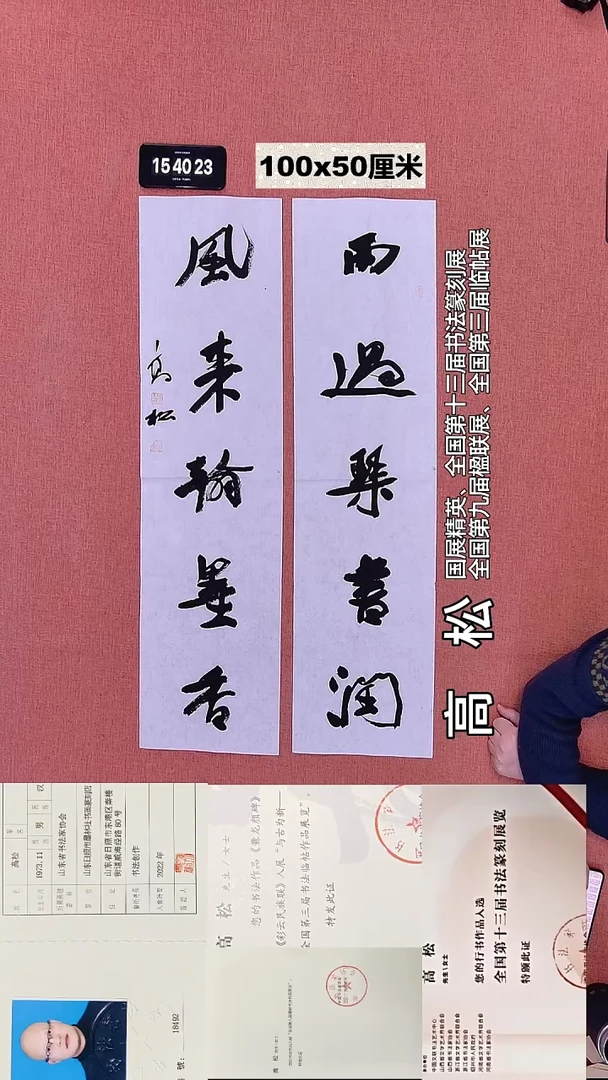 15 40 23
100x50厘米
雨過琴書潤
風来翰墨香
高松
国展精英、全国第十三届书法篆刻展
全国第九届楹联展、全国第三届临帖展
高 松
高松
男
汉
1973.11
山东省书法家协会
山东日照市墨林社书画篆刻店
山东省日照市东港区秦楼
街道威海路80号
书法创作
2022年
18492
號:
高 松 先生/女士
您的书法作品《爨龙颜碑》
《彩云民族联》入展“与古为新—
全国第三届书法临帖作品展览”。
特发此证
高 松
先生\女士
您的行书作品入选
全国第十三届书法篆刻展览
特颁此证